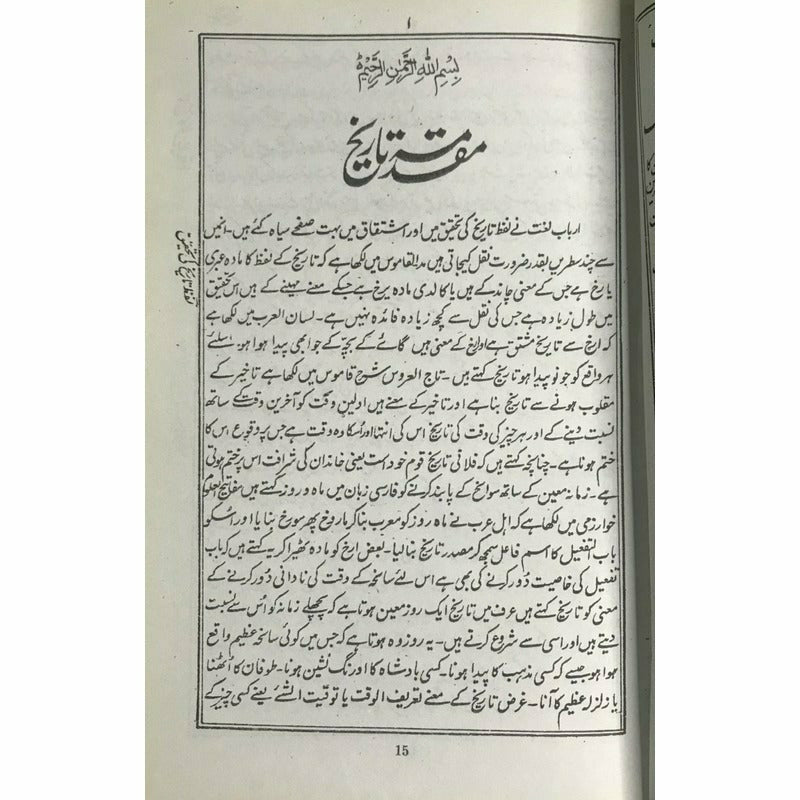 ا
بِسْمِ اللهِ الرَّحْمٰنِ الرَّحِيْمِ
مقدمۂ تاریخ
ارباب لغت نے لفظ تاریخ کی تحقیق میں اور اشتقاق میں بہت صفحے سیاہ کئے ہیں۔ انہیں
سے چند سطریں بقدر ضرورت نقل کیجاتی ہیں مد القاموس میں لکھا ہے کہ تاریخ کے لفظ کا مادہ عبری
یارخ ہے جس کے معنی چاند کے ہیں یا کالدی مادہ یرخ ہے جسکے معنے مہینے کے ہیں اس تحقیق
میں طول زیادہ ہے جس کی نقل سے کچھ زیادہ فائدہ نہیں ہے۔ لسان العرب میں لکھا ہے
کہ ارخ سے تاریخ مشتق ہے اور ارخ کے معنی ہیں گائے کے بچہ کے جو ابھی پیدا ہوا ہو۔ اسلئے
ہر واقع کو جو نو پیدا ہو تاریخ کہتے ہیں۔ تاج العروس شرح قاموس میں لکھا ہے تاخیر کے
مقلوب ہونے سے تاریخ بنا ہے اور تاخیر کے معنے ہیں اولین وقت کو آخرین وقت کے ساتھ
نسبت دینے کے اور ہر چیز کی وقت کی تاریخ اس کی انتہا اور اسکا وہ وقت ہے جس پر وقوع اس کا
ختم ہوتا ہے۔ چنانچہ کہتے ہیں کہ فلانی تاریخ قوم خود است یعنی خاندان کی شرافت اس پر ختم ہوتی
ہے۔ زمانہ معین کے ساتھ سوانح کے پابند کرنے کو فارسی زبان میں ماہ و روز کہتے ہیں مفاتیح العلوم
خوارزمی میں لکھا ہے کہ اہل عرب نے ماہ روز کو معرب بنا کر ماروخ پھر مورخ بنایا اور اسکو
باب تفعیل کا اسم فاعل سمجھ کر مصدر تاریخ بنا لیا۔ بعض ارخ کو مادہ ٹھیرا کر یہ کہتے ہیں کہ باب
تفعیل کی خاصیت دُور کرنے کی بھی ہے اس لئے سانحہ کے وقت کی نادانی دُور کرنے کے
معنی کو تاریخ کہتے ہیں عرف میں تاریخ ایک روز معین ہوتا ہے کہ پچھلے زمانہ کو اُس سے نسبت
دیتے ہیں اور اسی سے شروع کرتے ہیں۔ یہ روز وہ ہوتا ہے کہ جس میں کوئی سانحہ عظیم واقع
ہوا ہو جیسے کہ کسی مذہب کا پیدا ہونا۔ کسی بادشاہ کا اورنگ نشین ہونا۔ طوفان کا اُٹھنا
یا زلزلہ عظیم کا آنا۔ غرض تاریخ کے معنے تعریف الوقت یا توقیت الشئے یعنے کسی چیز کے
15